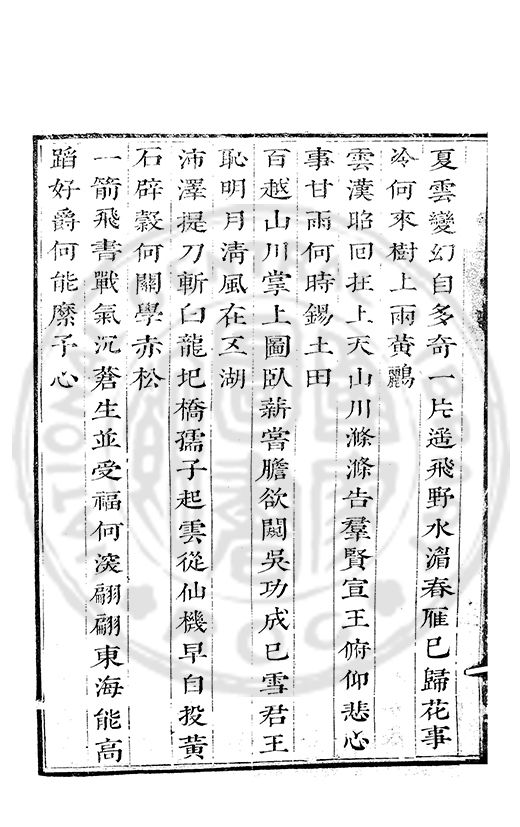 夏雲變幻自多奇一片遥飛野水湄春雁已歸花事
冷何來樹上兩黃鸝
雲漢昭回在上天山川滌滌告羣賢宣王俯仰悲心
事甘雨何時錫土田
百越山川掌上圖臥薪嘗膽欲闘吳功成已雪君王
恥明月淸風在五湖
沛澤提刀斬白龍圯橋孺子起雲從仙機早自投黃
石辟穀何關學赤松
一箭飛書戰氣沉蒼生並受福何深翩翩東海能高
蹈好爵何能縻予心